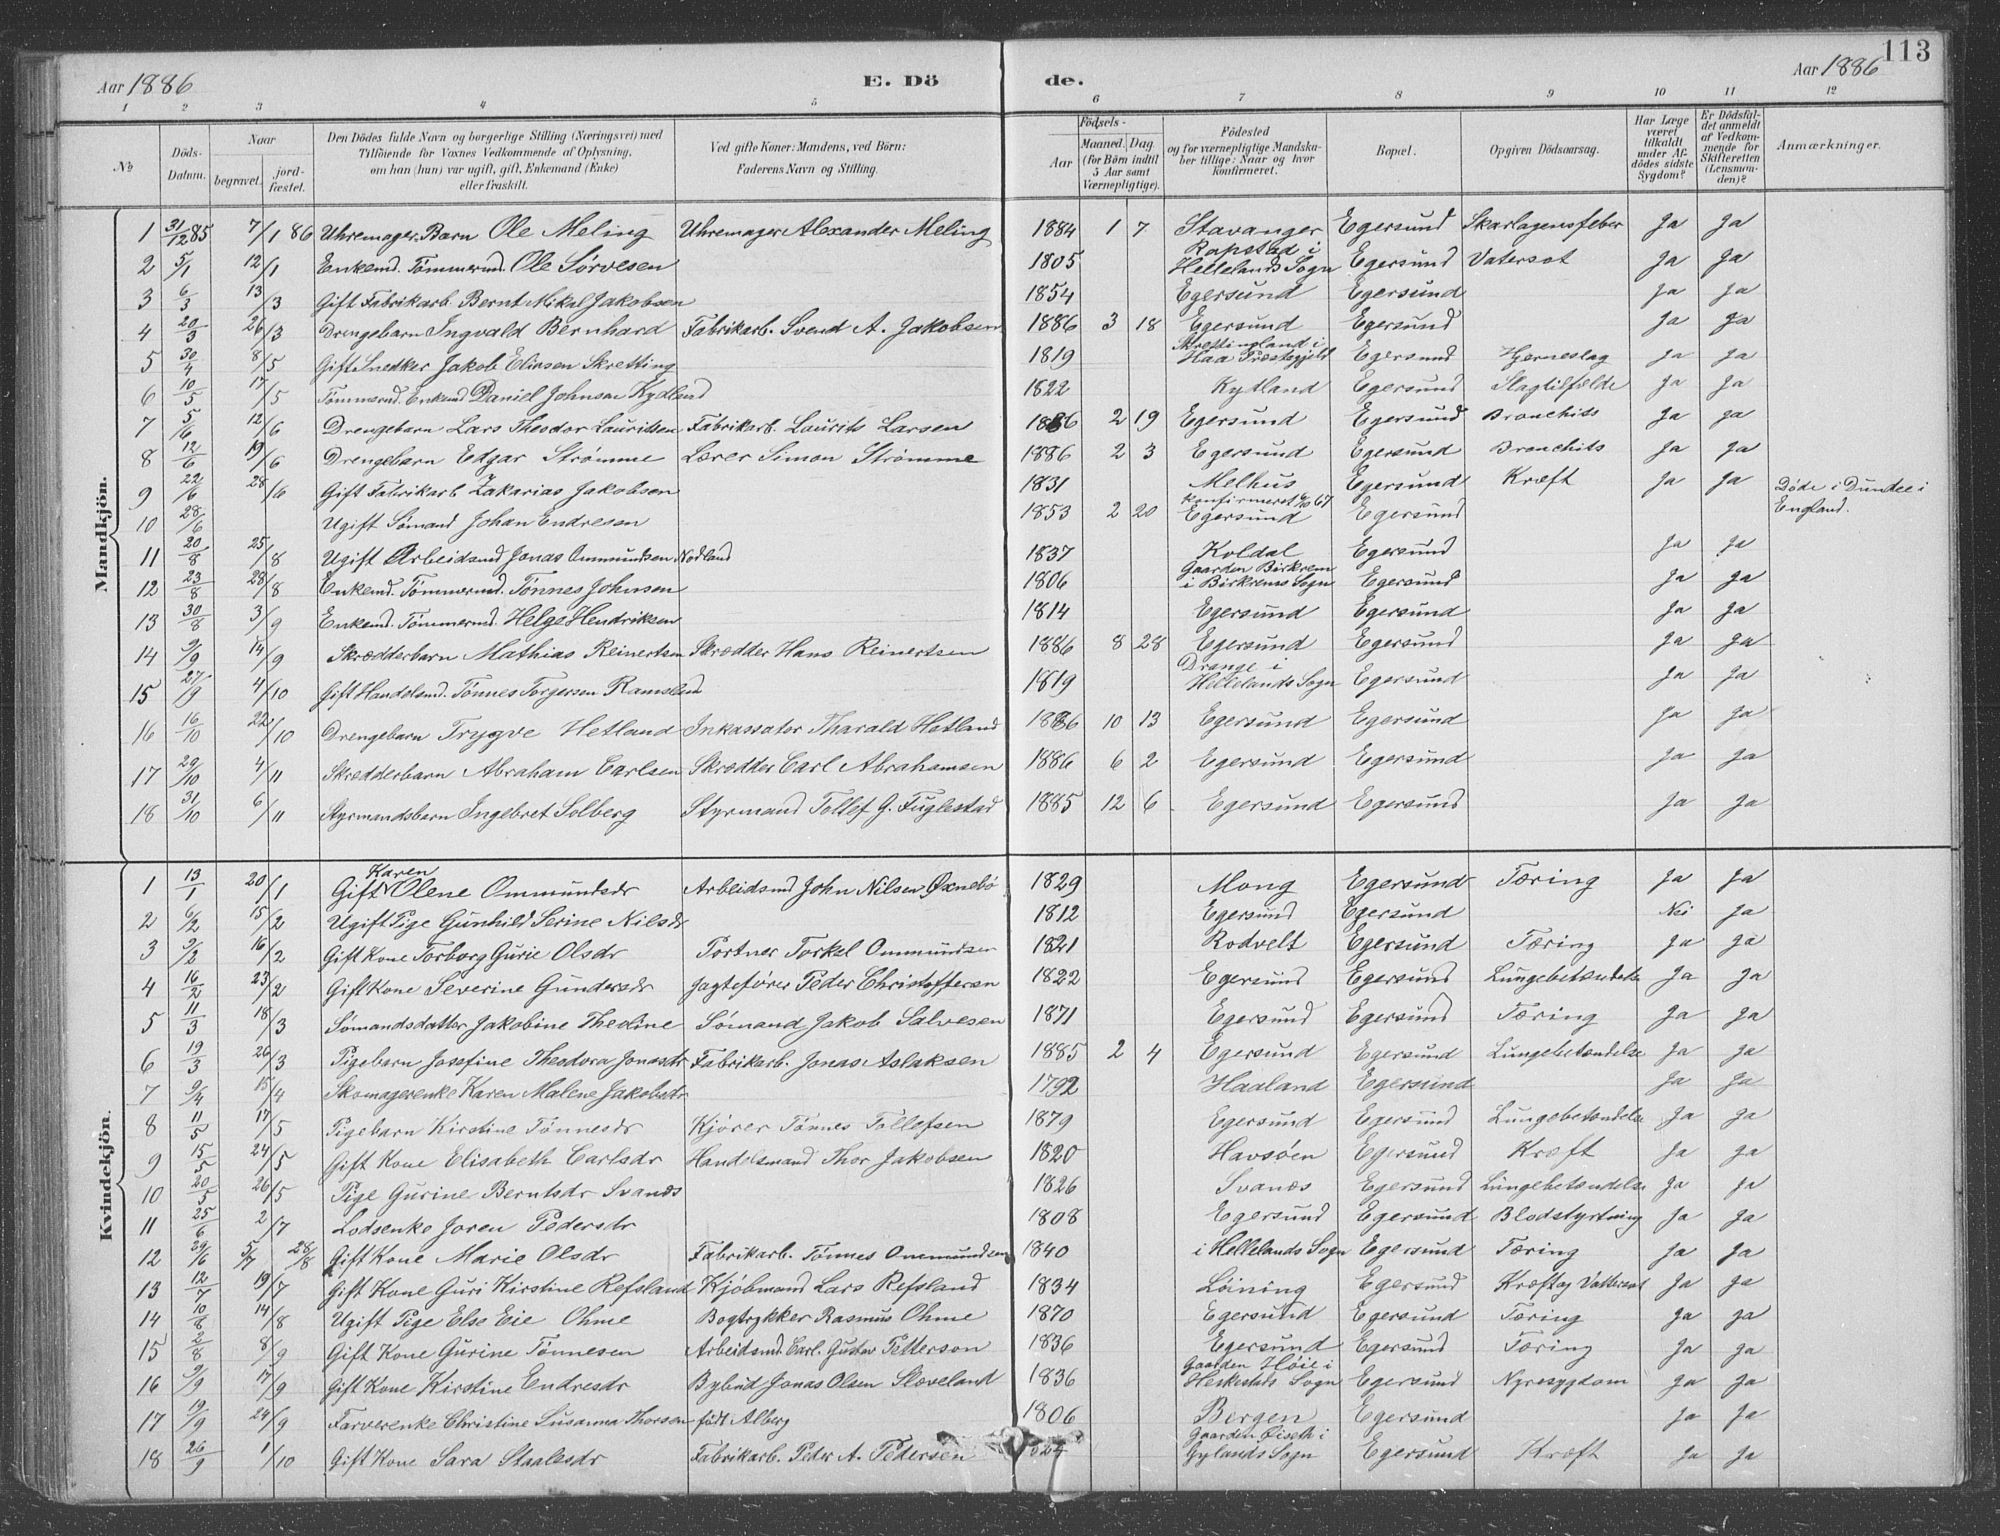 113
Aar 1886 E. Döde. Aar 1886
1 2 3 4 5 6 7 8 9 10 11 12
No Döds-Datum. Naar begravet. jordfæstet. Den Dödes fulde Navn og borgerlige Stilling (Næringsvei) med Tilföiende for Voxnes Vedkommende af Oplysning, om han (hun) var ugift, gift, Enkemand (Enke) eller fraskilt. Ved gifte Koner: Mandens, ved Börn: Faderens Navn og Stilling. Födsels- Aar Maaned. Dag (for Börn indtil 5 Aar samt Værnepligtige). Födested og for værnepligtige Mandskaber tillige: Naar og hvor konfirmeret. Bopæl. Opgiven Dödsaarsag. Har Læge været tilkaldt under Afdödes sidste Sygdom? Er Dödsfaldet anmeldt af Vedkommende for Skifteretten (Lensmanden)? Anmærkninger.
Mandkjön.
1 31/12 85 7/1 86 Uhremager Barn Ole Meling Uhremager Alexander Meling 1884 1 7 Stavanger Egersund Skarlagensfeber Ja Ja
2 5/1 12/1 Enkemd. Tömmermd. Ole Sörvesen 1805 Rapstad i Hellelands Sogn Egersund Vatersot Ja Ja
3 6/3 13/3 Gift Fabrikarb. Bernt Mikal Jakobsen 1854 Egersund Egersund Ja Ja
4 20/3 26/3 Drengebarn Ingvald Bernhard Fabrikarb. Svend A. Jakobsen 1886 3 18 Egersund Egersund Ja Ja
5 30/4 8/5 Gift Snedker Jakob Eliasen Skretting 1819 Skrettingland i Haa Præstegjeld Egersund Hjerneslag Ja Ja
6 10/5 17/5 Tömmermd. Enkemd Daniel Johnson Kydland 1822 Kytland Egersund Slagtilfælde Ja Ja
7 5/6 12/6 Drengebarn Lars Theodor Lauritsen Fabrikarb. Laurits Larsen 1886 2 19 Egersund Egersund Bronchits Ja Ja
8 12/6 19/6 Drengebarn Edgar Strømme Lærer Simon Strømme 1886 2 3 Egersund Egersund Bronchits Ja Ja
9 22/6 28/6 Gift Fabrikarb Zakarias Jakobsen 1831 Melhus Egersund Kræft Ja Ja
10 28/6 Ugift Sømand Johan Endresen 1853 2 20 Konfirmeret 67 Egersund Egersund Döde i Dundee i England.
11 20/8 25/8 Ugift Arbeidsmd Jonas Ommundsen Nodland 1837 Koldal Egersund Ja Ja
12 23/8 28/8 Enkemd. Tömmermd. Tønnes Johnsen 1806 Gaarden Birkrem i Birkrems Sogn Egersund Ja Ja
13 30/8 3/9 Enkemd. Tömmermd Helge Hendriksen 1814 Egersund Egersund Ja Ja
14 9/9 14/9 Skrædderbarn Mathias Reinertsen Skrædder Hans Reinertsen 1886 8 28 Egersund Egersund Ja Ja
15 27/9 4/10 Gift Handelsmd. Tønnes Torgersen Ramsland 1819 Drange i Hellelands Sogn Egersund Ja Ja
16 16/10 22/10 Drengebarn Trygve Hetland Inkassator Tharald Hetland 1886 10 13 Egersund Egersund Ja Ja
17 29/10 4/11 Skrædderbarn Abraham Carlsen Skrædder Carl Abrahamsen 1886 6 2 Egersund Egersund Ja Ja
18 31/10 6/11 Styrmandsbarn Ingebret Solberg Styrmand Tollef G. Fuglestad 1885 12 6 Egersund Egersund Ja Ja
Kvindekjön.
1 13/1 20/1 Gift Karen Olene Ommundsdr Arbeidsmd John Nilsen Øxnebö 1829 Mong Egersund Tæring Ja Ja
2 6/2 15/2 Ugift Pige Gunhild Serine Nilsdr 1812 Egersund Egersund Nei Ja
3 9/2 16/2 Gift Kone Torborg Gurie Olsdr Portner Torkel Ommundsen 1821 Rodvelt Egersund Tæring Ja Ja
4 16/2 23/2 Gift Kone Severine Gundersdr Jagtefører Peder Christoffersen 1822 Egersund Egersund Lungebetændelse Ja Ja
5 11/3 18/3 Sømandsdatter Jakobine Theoline Sømand Jakob Salvesen 1871 Egersund Egersund Tæring Ja Ja
6 19/3 26/3 Pigebarn Josefine Theodora Jonasdr Fabrikarb. Jonas Aslaksen 1885 2 4 Egersund Egersund Lungebetændelse Ja Ja
7 9/4 15/4 Skomagerenke Karen Malene Jakobsdr 1792 Haaland Egersund Ja Ja
8 11/5 17/5 Pigebarn Kirstine Tønnesdr Kjører Tønnes Tollefsen 1879 Egersund Egersund Lungebetændelse Ja Ja
9 15/5 24/5 Gift Kone Elisabeth Carlsdr Handelsmand Thor Jakobsen 1820 Havsöen Egersund Kræft Ja Ja
10 20/5 26/5 Pige Gurine Berntsdr Svanæs 1826 Svanæs Egersund Lungebetændelse Ja Ja
11 25/6 2/7 Lodsenke Joren Pederstr 1808 Egersund Egersund Blodstyrtning Ja Ja
12 29/6 5/7 28/8 Gift Kone Marie Olsdr Fabrikarb. Tønnes Ommundsen 1840 i Hellelands Sogn Egersund Tæring Ja Ja
13 12/7 19/7 Gift Kone Guri Kirstine Refsland Kjöbmand Lars Refsland 1834 Löining Egersund Kræft og Vattersot Ja Ja
14 10/8 14/8 Ugift Pige Else Eie Ohme Bogtrykker Rasmus Ohme 1870 Egersund Egersund Tæring Ja Ja
15 2/8 8/9 Gift Kone Gurine Tönnesen Arbeidsmd. Carl Gustav Petterson 1836 Egersund Egersund Tæring Ja Ja
16 9/9 17/9 Gift Kone Kirstine Endresdr Bybud Jonas Olsen Sleveland 1836 Gaarden Höie i Heskestads Sogn Egersund Nyresygdom Ja Ja
17 19/9 24/9 Farverenke Christine Susanna Thorsen født Alberg 1806 Bergen Egersund Ja Ja
18 26/9 1/10 Gift Kone Sara Staalesdr Fabrikarb. Peder A. Pedersen Gaarden Öiseth i Gylands Sogn Egersund Kræft Ja Ja